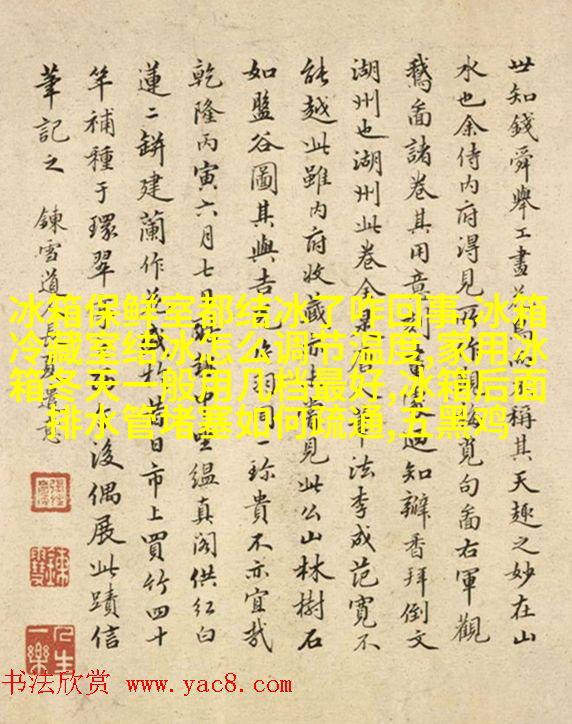 世知錢舜舉工畫而稱其天趣之妙在山
水也余侍内府得見所作觀海覓句啚右軍觀
鵝啚諸卷其用意知瓣香拜倒文
湖州也湖州此卷全法李成范寬不
能越此雖内府收藏見此公山林樹石
如盤谷圖其與吉羽同珍貴不亦宜哉
乾隆丙寅六月七日坐緼真阁供紅白
蓮二缾建蘭作日市上買竹四十
竿補種于環翠後偶展此蹟信
筆記之 鍊雪道人長真
人生一樂
冰箱保鲜室都结冰了咋回事,冰箱
冷藏室结冰怎么调节温度,家用冰
箱冬天一般用几档最好,冰箱后面
排水管堵塞如何疏通,五黑鸡
书法欣赏 www.yac8.com